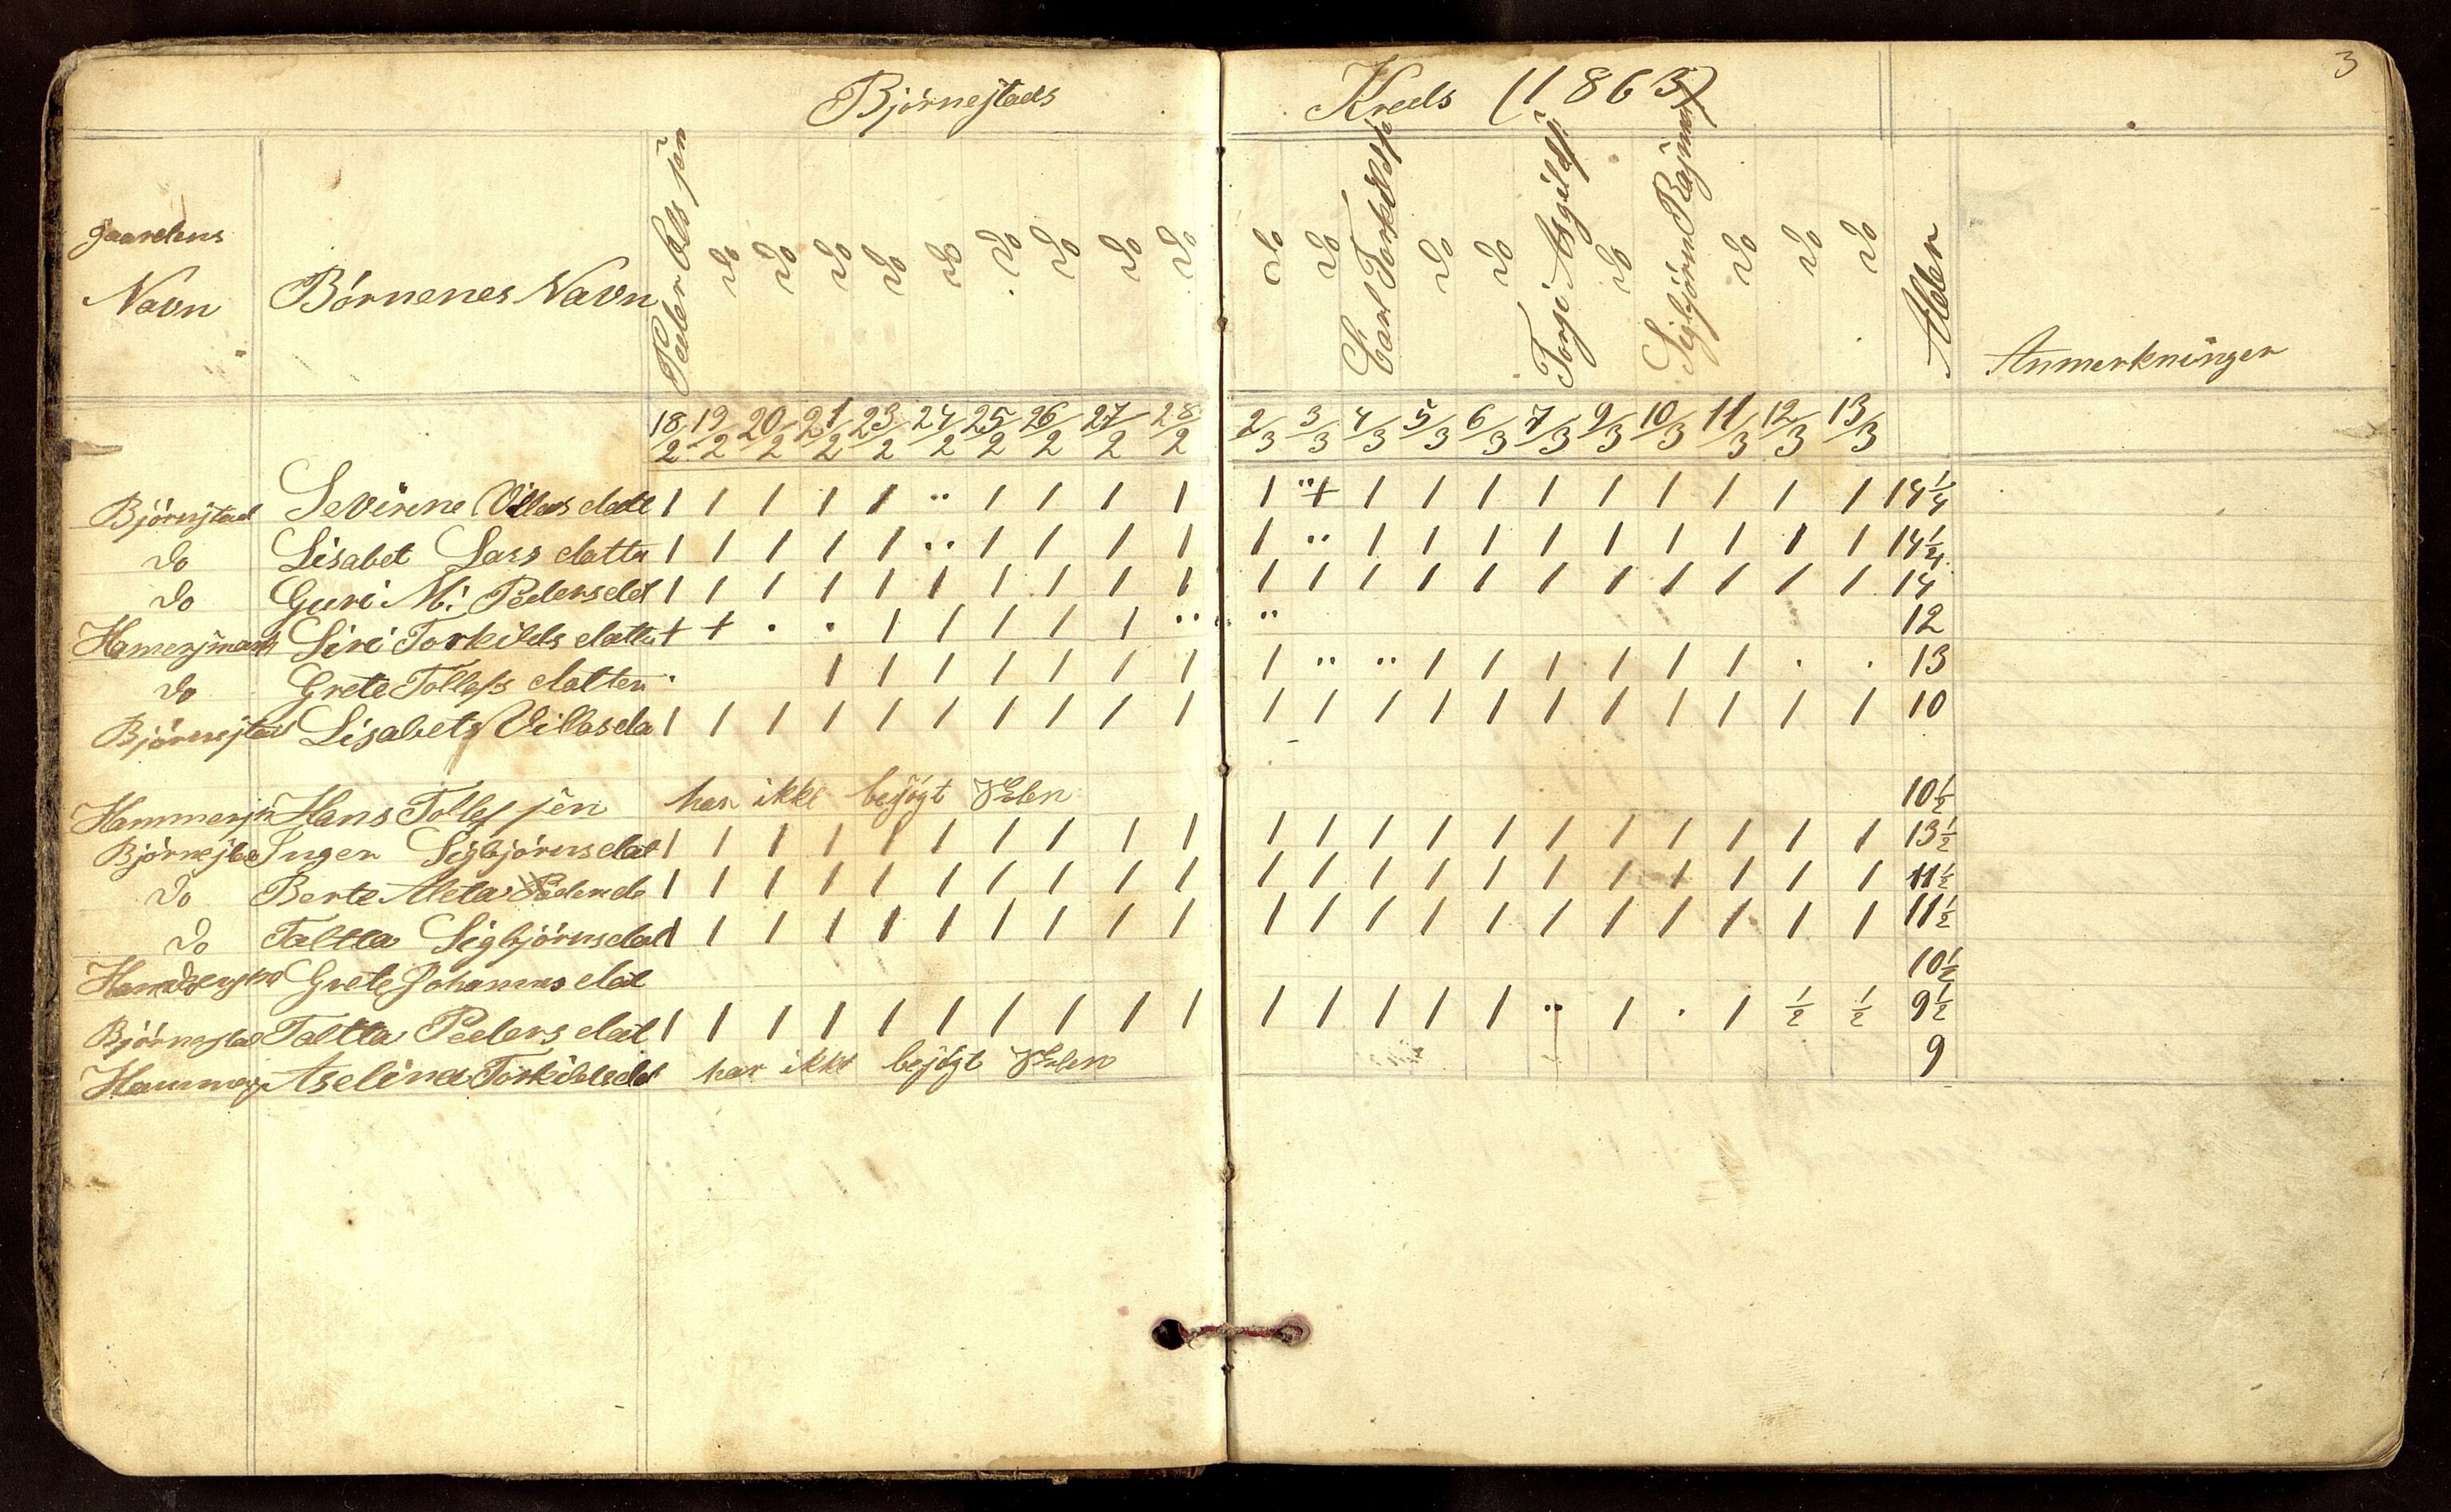 Björnestads Kreds (1863) 3
Gaardens Navn
Börnenes Navn
Peder Ols sen do do do do do do do do do do do Carl Torkilds do do Torje Asgilds do Sigbjörn Rasmus do do do
Alder
Anmerkninger
18/2 19/2 20/2 21/2 23/2 24/2 25/2 26/2 27/2 28/2 2/3 3/3 4/3 5/3 6/3 7/3 9/3 10/3 11/3 12/3 13/3
Björnstad Sevirine Villas datt 1 1 1 1 1 .. 1 1 1 1 1 ..+ 1 1 1 1 1 1 1 1 1 14 1/4
do Lisabet Lars datte 1 1 1 1 1 .. 1 1 1 1 1 .. 1 1 1 1 1 1 1 1 1 14 1/4
do Guri M: Pedersdt 1 1 1 1 1 1 1 1 1 1 1 1 1 1 1 1 1 1 1 1 1 14
Hamersmark Siri Torkilds datte + + . . 1 1 1 1 1 .. .. 12
do Grete Tollefs datter . 1 1 1 1 1 1 1 1 .. .. 1 1 1 1 1 1 . . 13
Björnestad Lisabet Villasda 1 1 1 1 1 1 1 1 1 1 1 1 1 1 1 1 1 1 1 1 1 10
Hammersm Hans Tollef sen har ikke besögt Skolen 10 1/2
Björnesta Inger Sigbjörnsdat 1 1 1 1 1 1 1 1 1 1 1 1 1 1 1 1 1 1 1 1 1 13 1/2
do Berte Meta Pedersda 1 1 1 1 1 1 1 1 1 1 1 1 1 1 1 1 1 1 1 1 1 11 1/2
do Taltta Sigbjörnsdat 1 1 1 1 1 1 1 1 1 1 1 1 1 1 1 1 1 1 1 1 1 11 1/2
Grete Johannes dat 10 1/2
Björnestad Taltta Peders dat 1 1 1 1 1 1 1 1 1 1 1 1 1 1 1 .. 1 . 1 1/2 1/2 9 1/2
Hammers Aselina Torkildsdat har ikke besögt Skolen 9